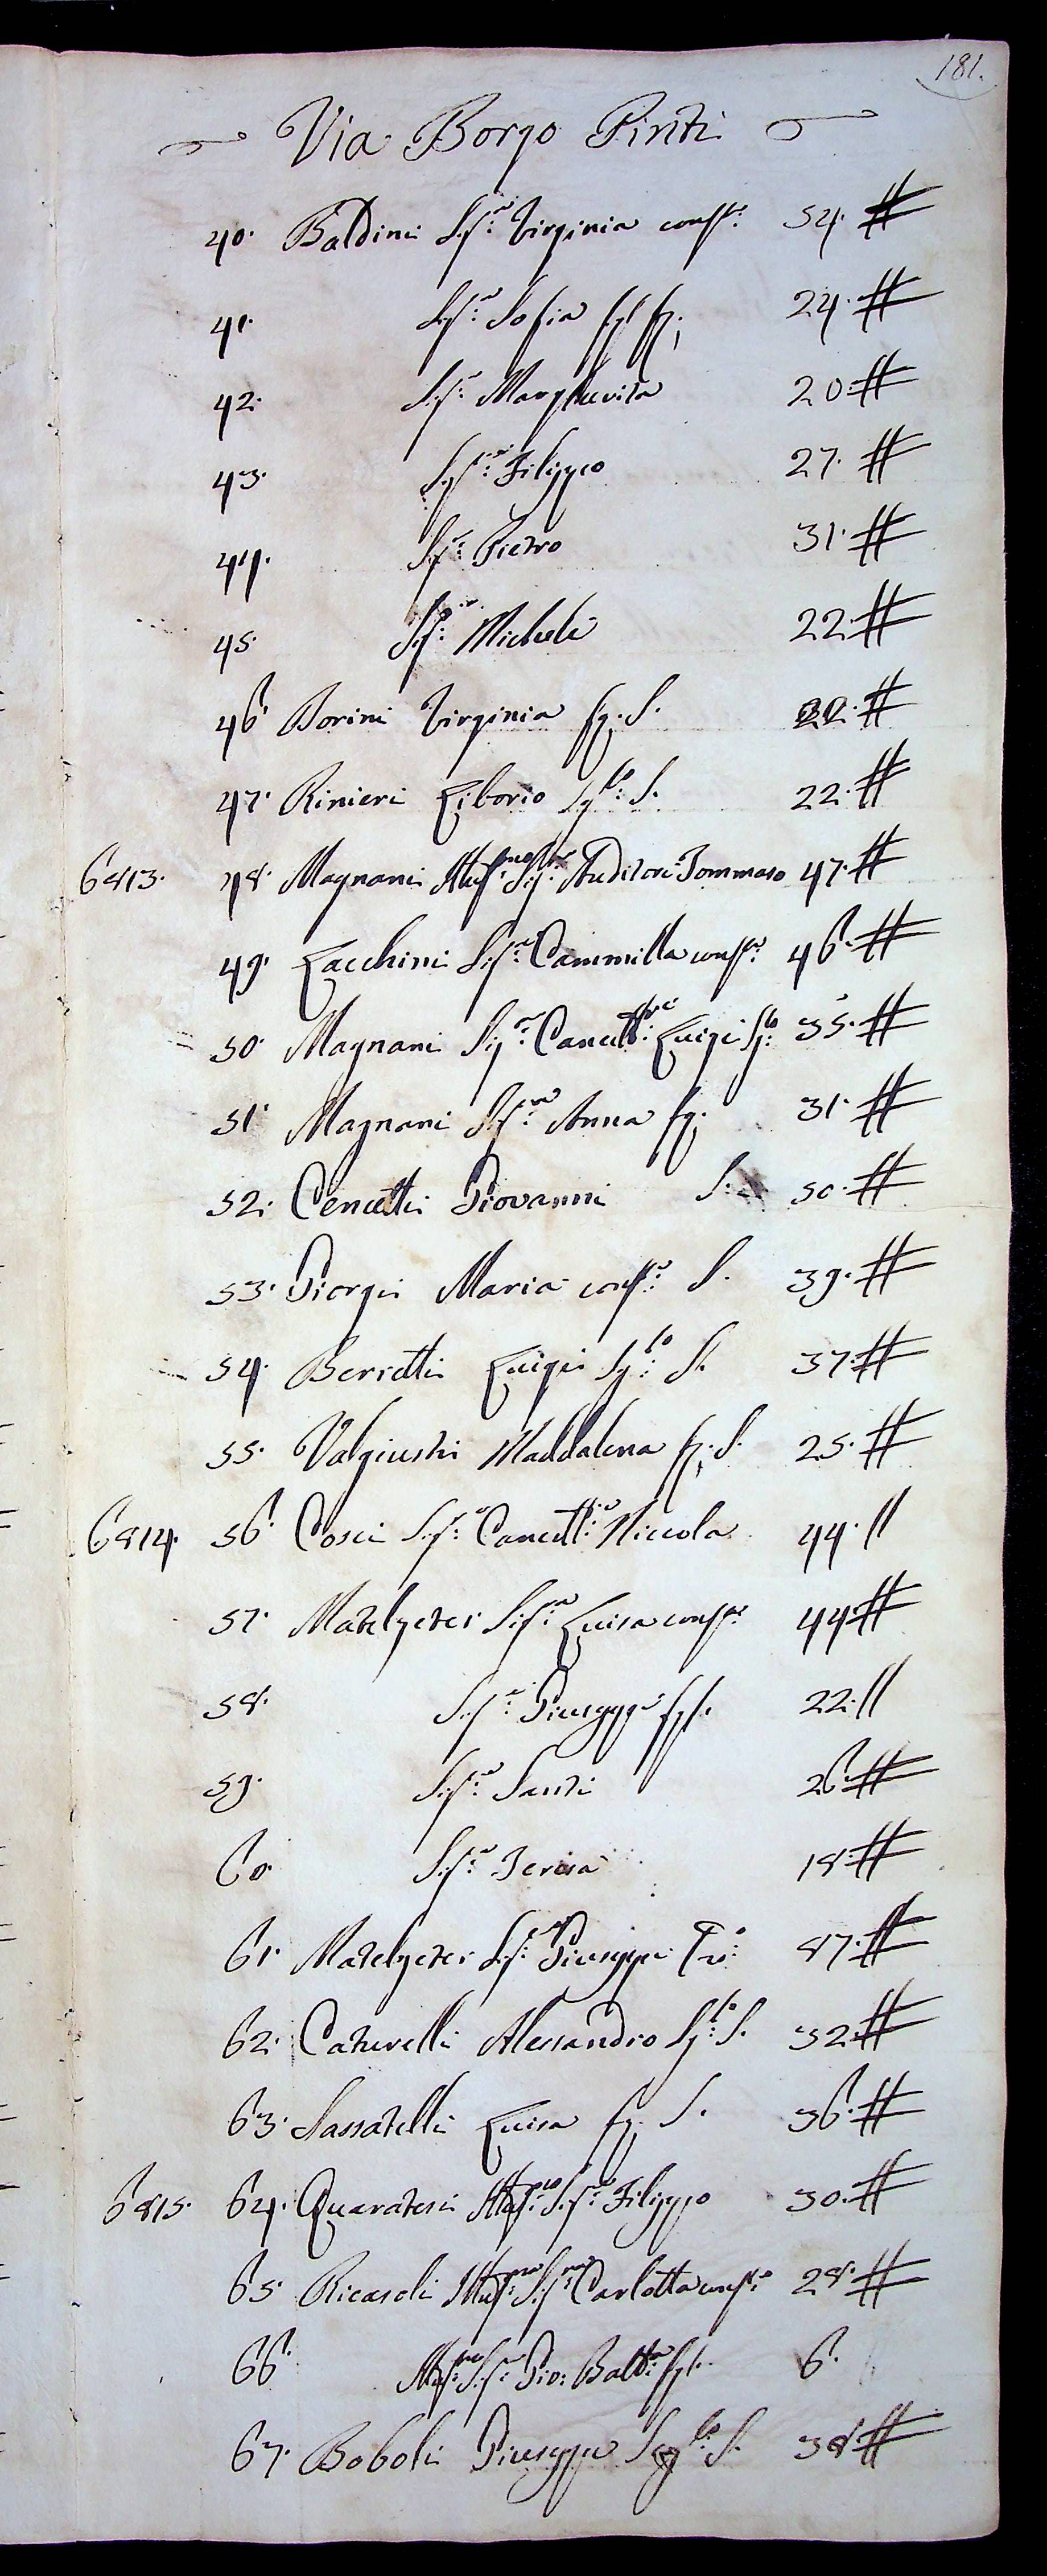 181.
Via Borgo Pinti
40. Baldini Sig.ra Virginia conj.e 54. #
41. Sig.ra Sofia figl. fg. 24. #
42. Sig.ra Margherita 20. #
43. Sig.re Filippo 27. #
44. Sig.re Pietro 31. #
45. Sig.re Michele 22. #
46. Borini Virginia fg. S. #
47. Rinieri Liborio Sg.lo S. 22. #
6813. 48. Magnani Illus.mo Sig.re Auditore Tommaso 47. #
49. Zacchini Sig.ra Cammilla conj.e 46. #
50. Magnani Sig.re Cancell.re Luigi Sg.lo 35. #
51. Magnani Sig.ra Anna fg. 31. #
52. Cencetti Giovanni S. 50. #
53. Giorgi Maria conj.e S. 39. #
54. Berretti Luigi Sg.lo S. 37. #
55. Valgiusti Maddalena fg. S. 25. #
6814. 56. Cosci Sig.re Cancell.re Niccola 44. //
57. Matelgeter Sig.ra Luisa conj.e 44. #
58. Sig.re Giuseppe figl. 22. //
59. Sig.re Santi 26. #
60. Sig.ra Teresa 18. #
61. Matelgeter Sig.re Giuseppe 87. #
62. Caturelli Alessandro Sg.lo S. 32. #
63. Sassatelli Luisa fg. S. 36. #
6815. 64. Quaratesi Illus.mo Sig.re Filippo 30. #
65. Ricasoli Illus.ma Sig.ra Carlotta conj.e 28. #
66. Illus.mo Sig.re Gio: Batt.a figl. 6.
67. Boboli Giuseppe Sg.lo S. 38. #